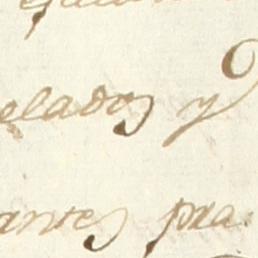 elados y
antes pra.